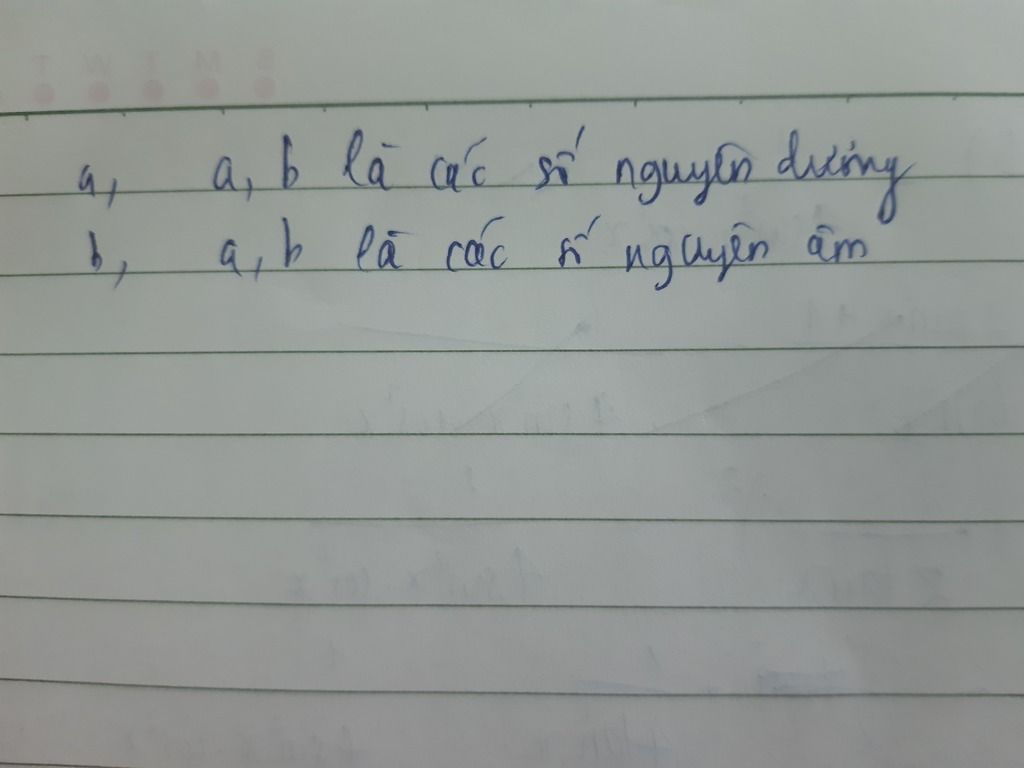 a, a, b là các số nguyên dương
b, a, b là các số nguyên âm